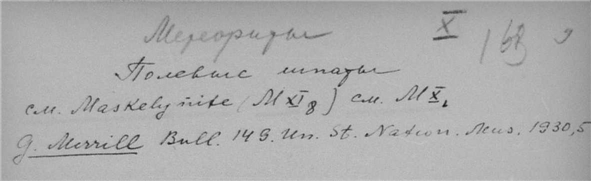 Метеориты X 163
Полевые шпаты
см. Maskelynite (M XI 8) см. M X 1
G. Merrill Bull. 149. Un. St. Nation. Mus. 1930, 5